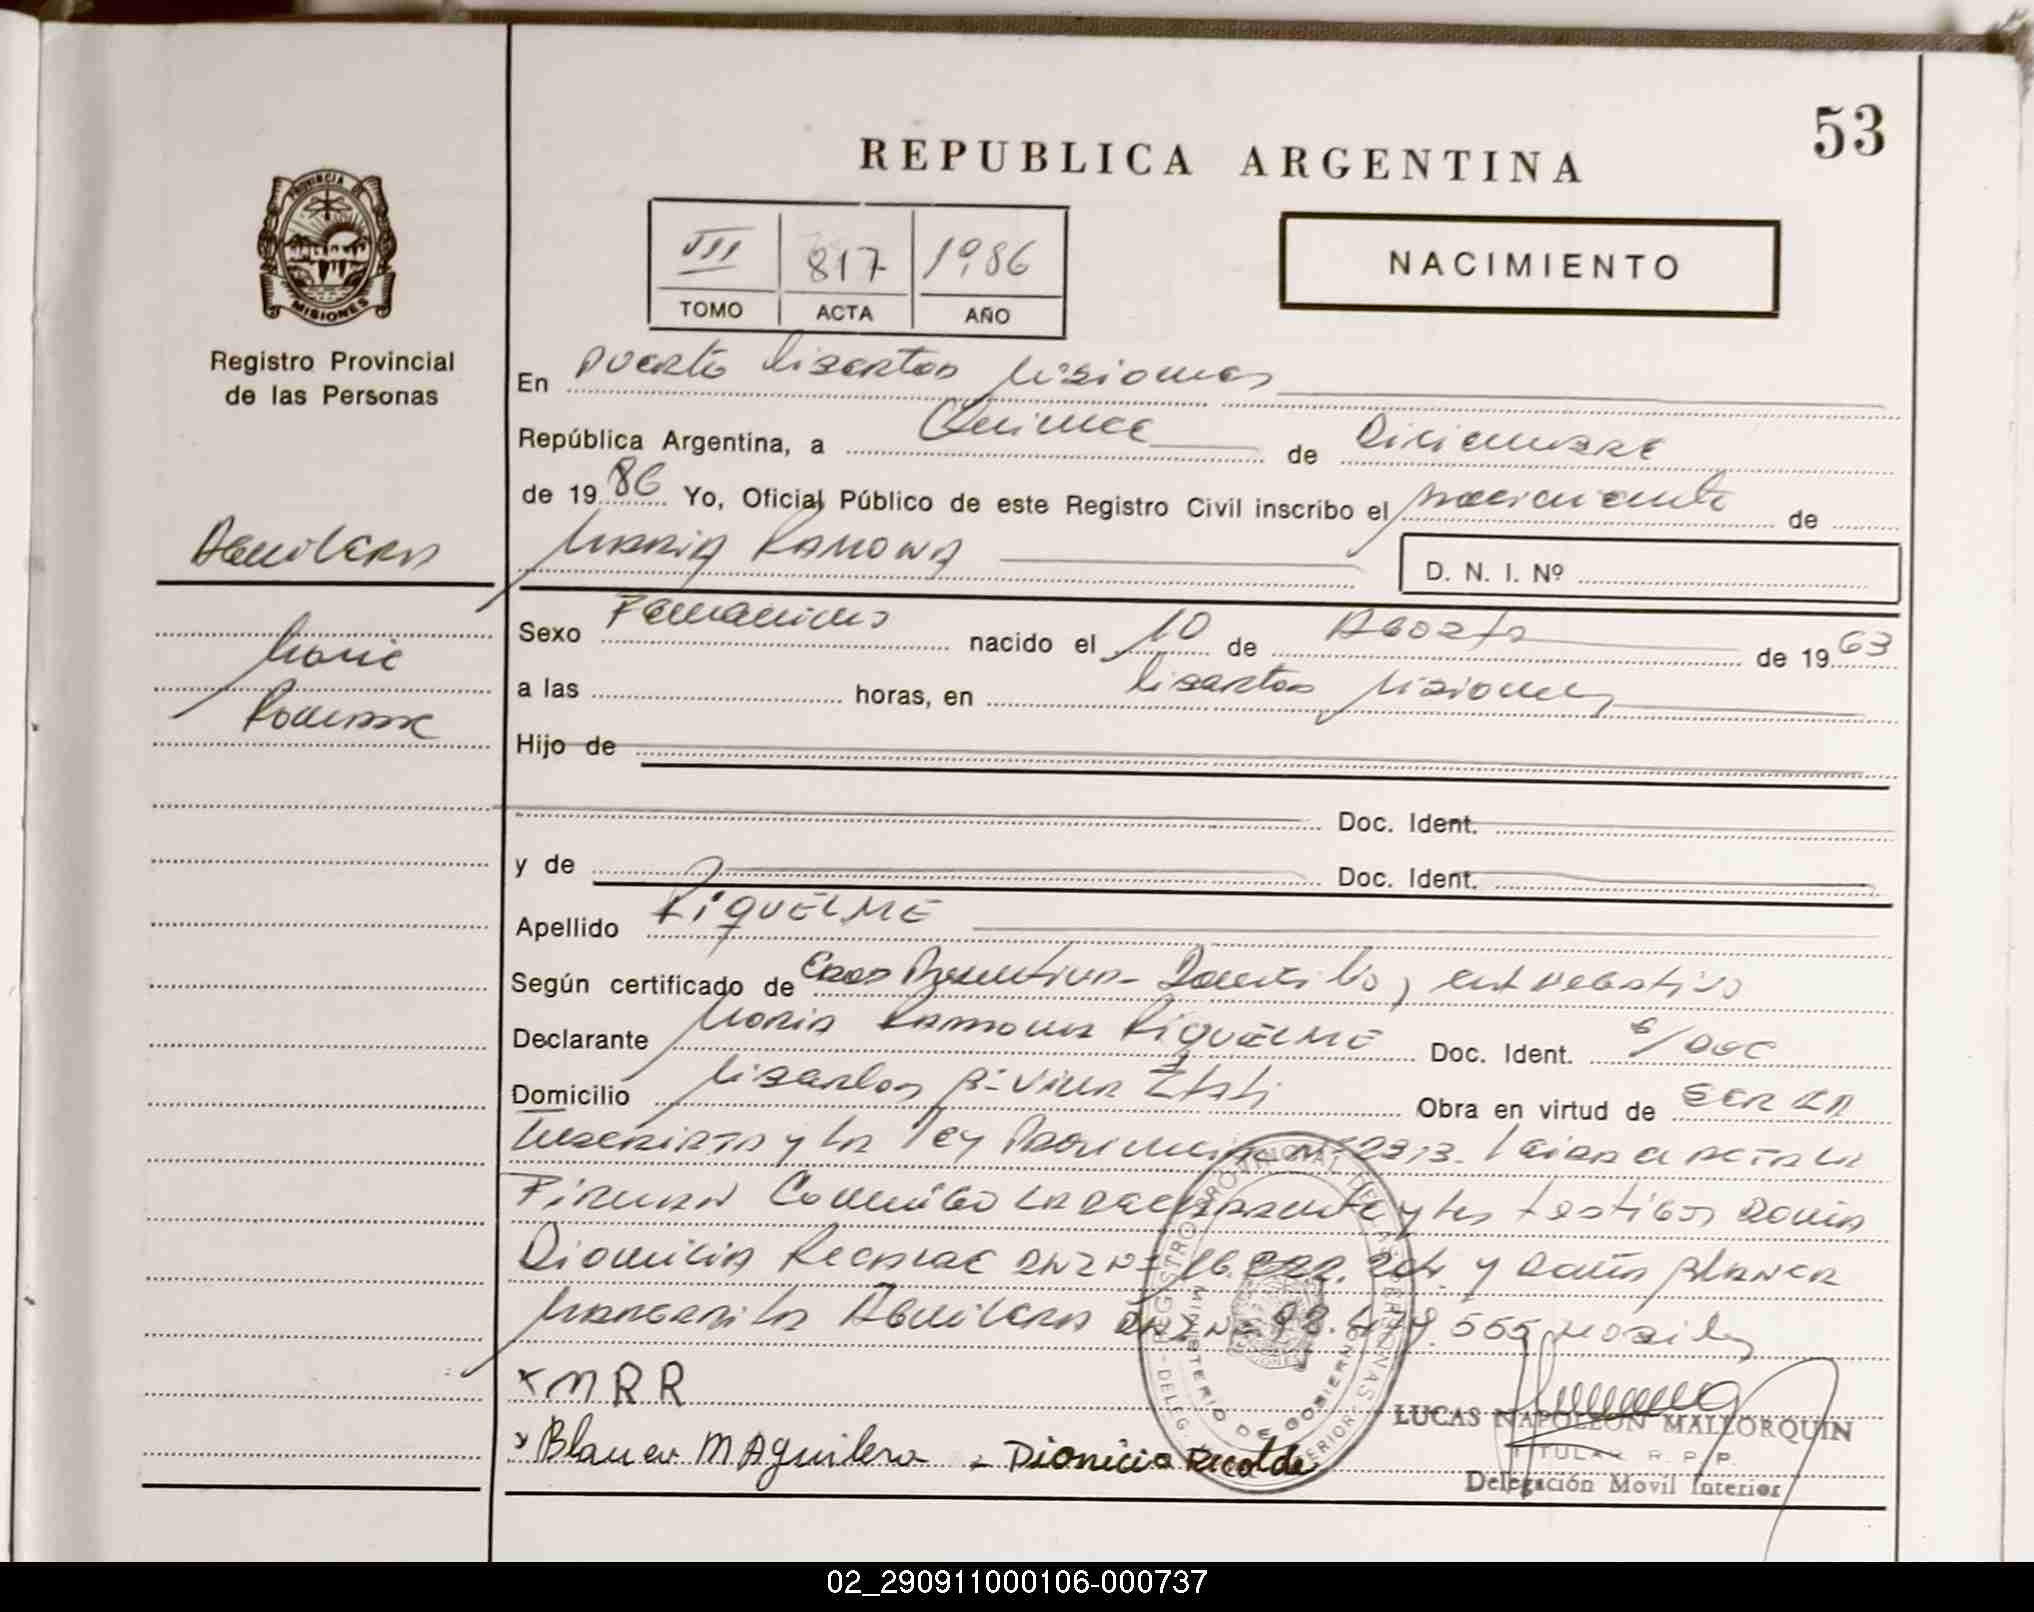 53
REPUBLICA ARGENTINA
PROVINCIA DE
MISIONES
Registro Provincial
de las Personas
III 817 1986
TOMO ACTA AÑO
NACIMIENTO
En Puerto Libertad Misiones
República Argentina, a Quince de Diciembre
de 19 86 Yo, Oficial Público de este Registro Civil inscribo el nacimiento de
Aguilera
Maria Ramona
D. N. I. Nº
Maria
Ramona
Sexo Femenino nacido el 10 de Agosto de 19 63
a las horas, en Libertad Misiones
Hijo de
Doc. Ident.
y de Doc. Ident.
Apellido RiquELME
Según certificado de
Declarante Maria Ramona RiquELME Doc. Ident. s/Doc
Domicilio Libertad Bº Villa Itati Obra en virtud de SER LA
Inscripta y la ley Provincial Nº 2313. Leida el acta la
Firman Conmigo la declarante y los testigos Doña
Dionicia Recalde DNI Nº 16. y Doña Blanca
Margarita Aguilera DNI Nº
x MRR
x Blanca M Aguilera - Dionicia Recalde
REGISTRO PROVINCIAL DE LAS PERSONAS
MINISTERIO DE GOBIERNO
LUCAS NAPOLEON MALLORQUIN
TITULAR R. P. P.
Delegación Movil Interior
02_290911000106-000737